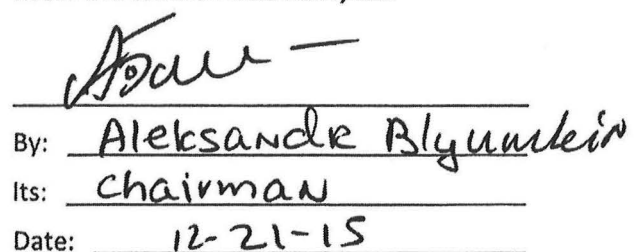 By: Aleksandr Blyumkin
Its: Chairman
Date: 12-21-15